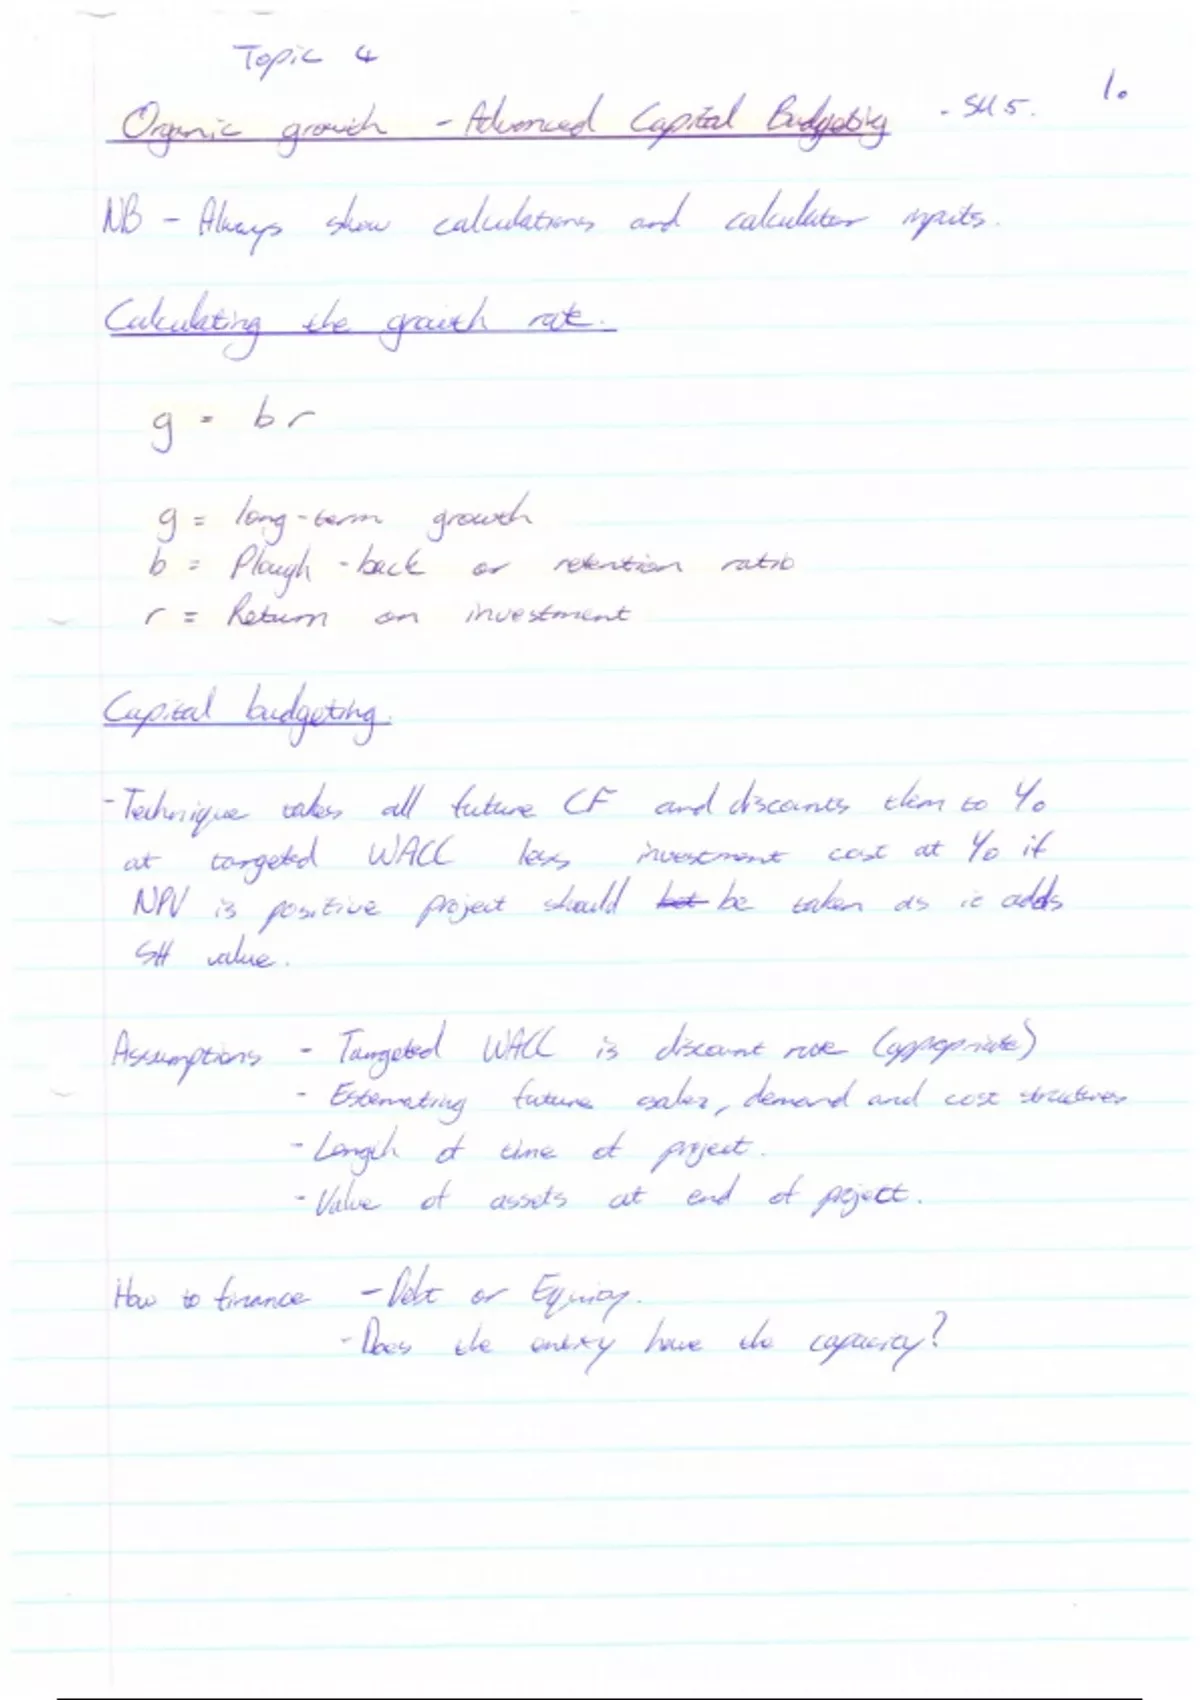 Topic 4
Organic growth - Advanced Capital Budgeting - SM 5. 1.
NB - Always show calculations and calculator inputs.
Calculating the growth rate.
g = br
g = long-term growth
b = Plough-back or retention ratio
r = Return on investment
Capital budgeting.
- Technique takes all future CF and discounts them to Y0
at targeted WACC less investment cost at Y0 if
NPV is positive project should be taken as it adds
SH value.
Assumptions - Targeted WACC is discount rate (appropriate)
- Estemating future sales, demand and cost structures
- Length of time of project.
- Value of assets at end of project.
How to finance - Debt or Equity.
- Does the entity have the capacity?